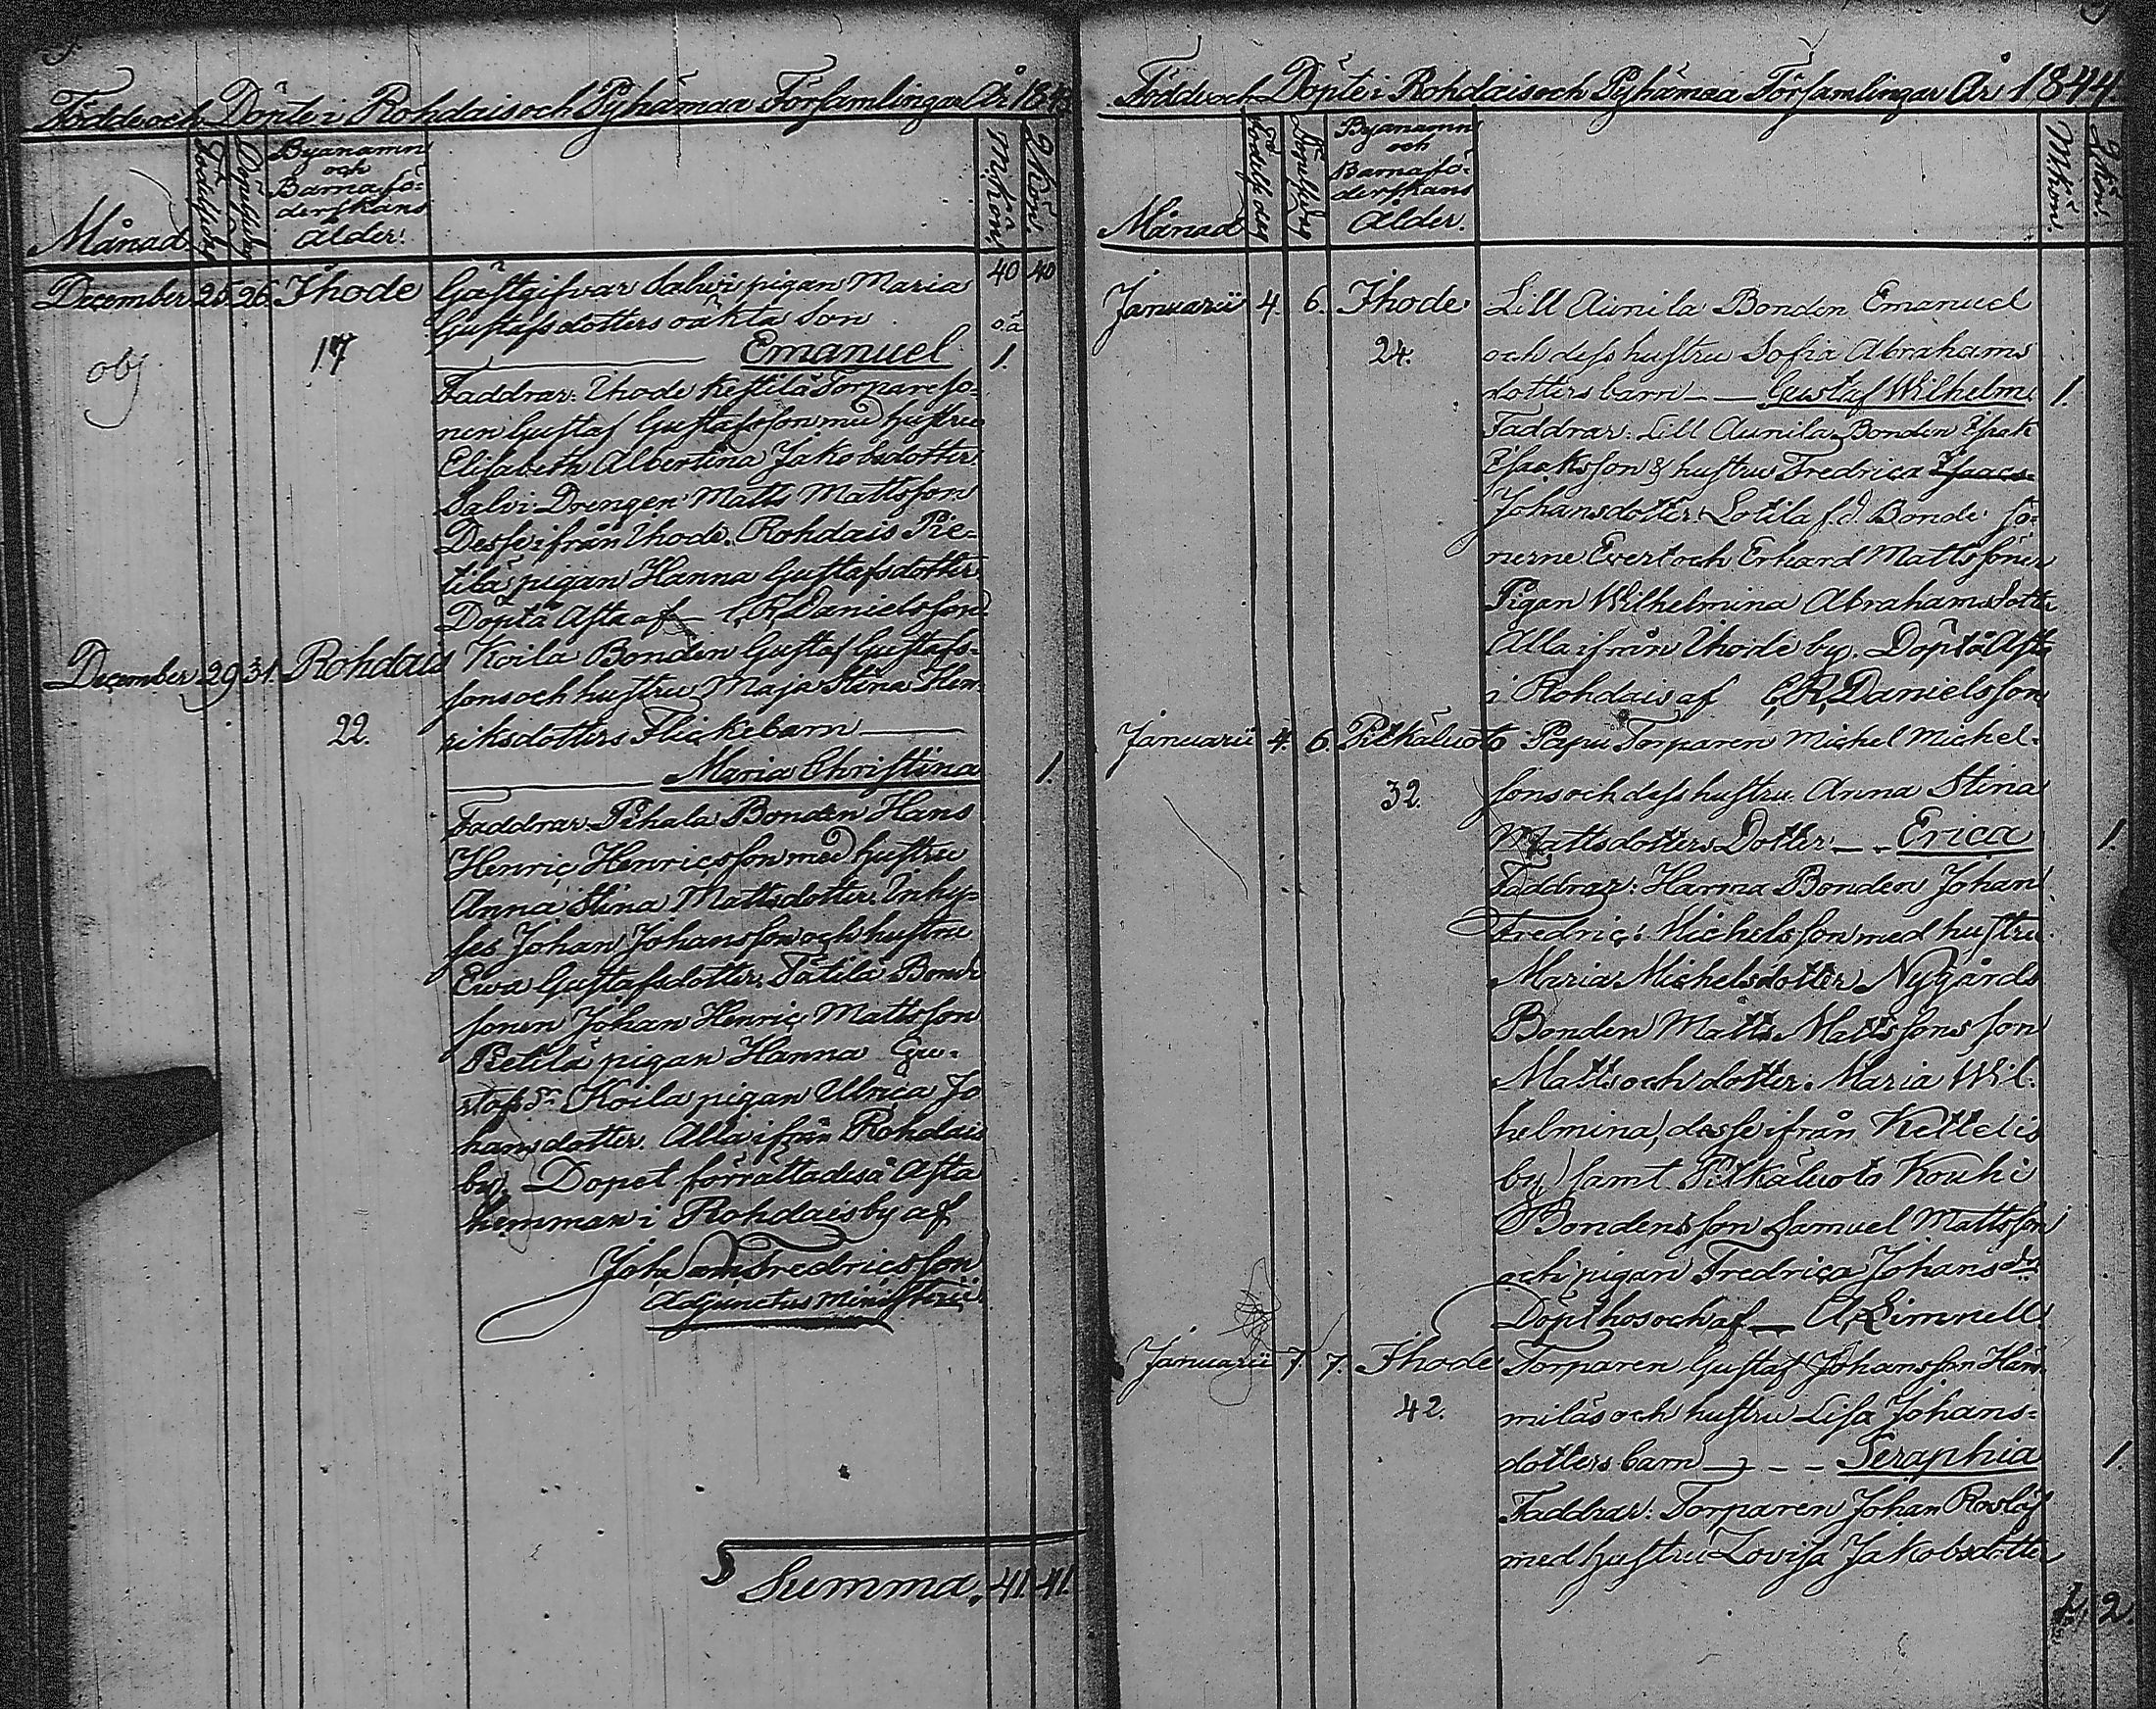 Födde och Döpte i Rohdais och Pyhämaa Församlingar År 1843
Månad
Födelsedag
Döpelsedag
Byanamn
och
Barnafö-
derskans
ålder.
M.kön.
Q.kön.
40 40
December 25 26 Ihode Gästgifvar Salvis pigan Maria
Gustafsdotters oäkta Son
oä
obs
17
Emanuel 1.
Faddrar: Ihode Kestilä Torpareso-
nen Gustaf Gustafsson med hustru
Elisabeth Albertina Jakobsdotter.
Salvi Drengen Matts Mattsson
Desse ifrån Ihode. Rohdais Pie-
tilä pigan Hanna Gustafsdotter
Döpt å Asta af C.R. Danielsson
December 29 31. Rohdais Koila Bonden Gustaf Gustafs-
sons och hustru Maja Stina Hen-
22. riksdotters Flickebarn
Maria Christina 1.
Faddrar Pihala Bonden Hans
Henric Henricsson med hustru
Anna Stina Mattsdotter. Inhy-
ses Johan Johansson och hustru
Ewa Gustafsdotter. Tätilä Bonde
sonen Johan Henric Mattsson
Pietilä pigan Hanna Gu-
stafsdr Koila pigan Ulrica Jo
hansdotter. Alla ifrån Rohdais
by. Dopet förrättades å Asta
hemman i Rohdais by af
Johan Fredricsson
Adjunctus Ministerii.
Summa. 41 41.
Födde och Döpte i Rohdais och Pyhämaa Församlingar År 1844
Månad
Födelsedag
Döpelsedag
Byanamn
och
Barnafö-
derskans
Ålder.
M.kön.
Q.kön.
Januarii 4. 6. Ihode Lill Aunila Bonden Emanuel
24. och dess hustru Sofia Abrahams
dotters barn Gustaf Wilhelm 1.
Faddrar: Lill Aunila Bonden Isak
Isaksson & hustru Fredrica Isaacs-
Johansdotter. Lotila f.d. Bonde sö-
nerne Evert och Erhard Mattssöner
Pigan Wilhelmina Abrahamsdotter
Alla ifrån Ihode by. Döpt å Asta
i Rohdais af C.R. Danielsson
Januarii 4. 6. Pitkäluoto Papu Torparen Michel Michel-
32. sons och dess hustru Anna Stina
Mattsdotters Dotter Erica 1.
Faddrar: Harma Bonden Johan
Fredric Michelsson med hustru
Maria Michelsdotter Nygårds
Bonden Matts Mattssons son
Matts och dotter Maria Wil-
helmina, desse ifrån Kettelis
by samt Pitkäluoto Kouhi
Bondens son Samuel Mattsson
och pigan Fredrica Johansdr
Döpt hos och af A. Limnell
Januarii 7. 7. Ihode Torparen Gustaf Johansson Häm
42. miläs och hustru Lisa Johans-
dotters barn Seraphia 1.
Faddrar: Torparen Johan Roslöf
med hustru Lovisa Jakobsdotter
1. 2.